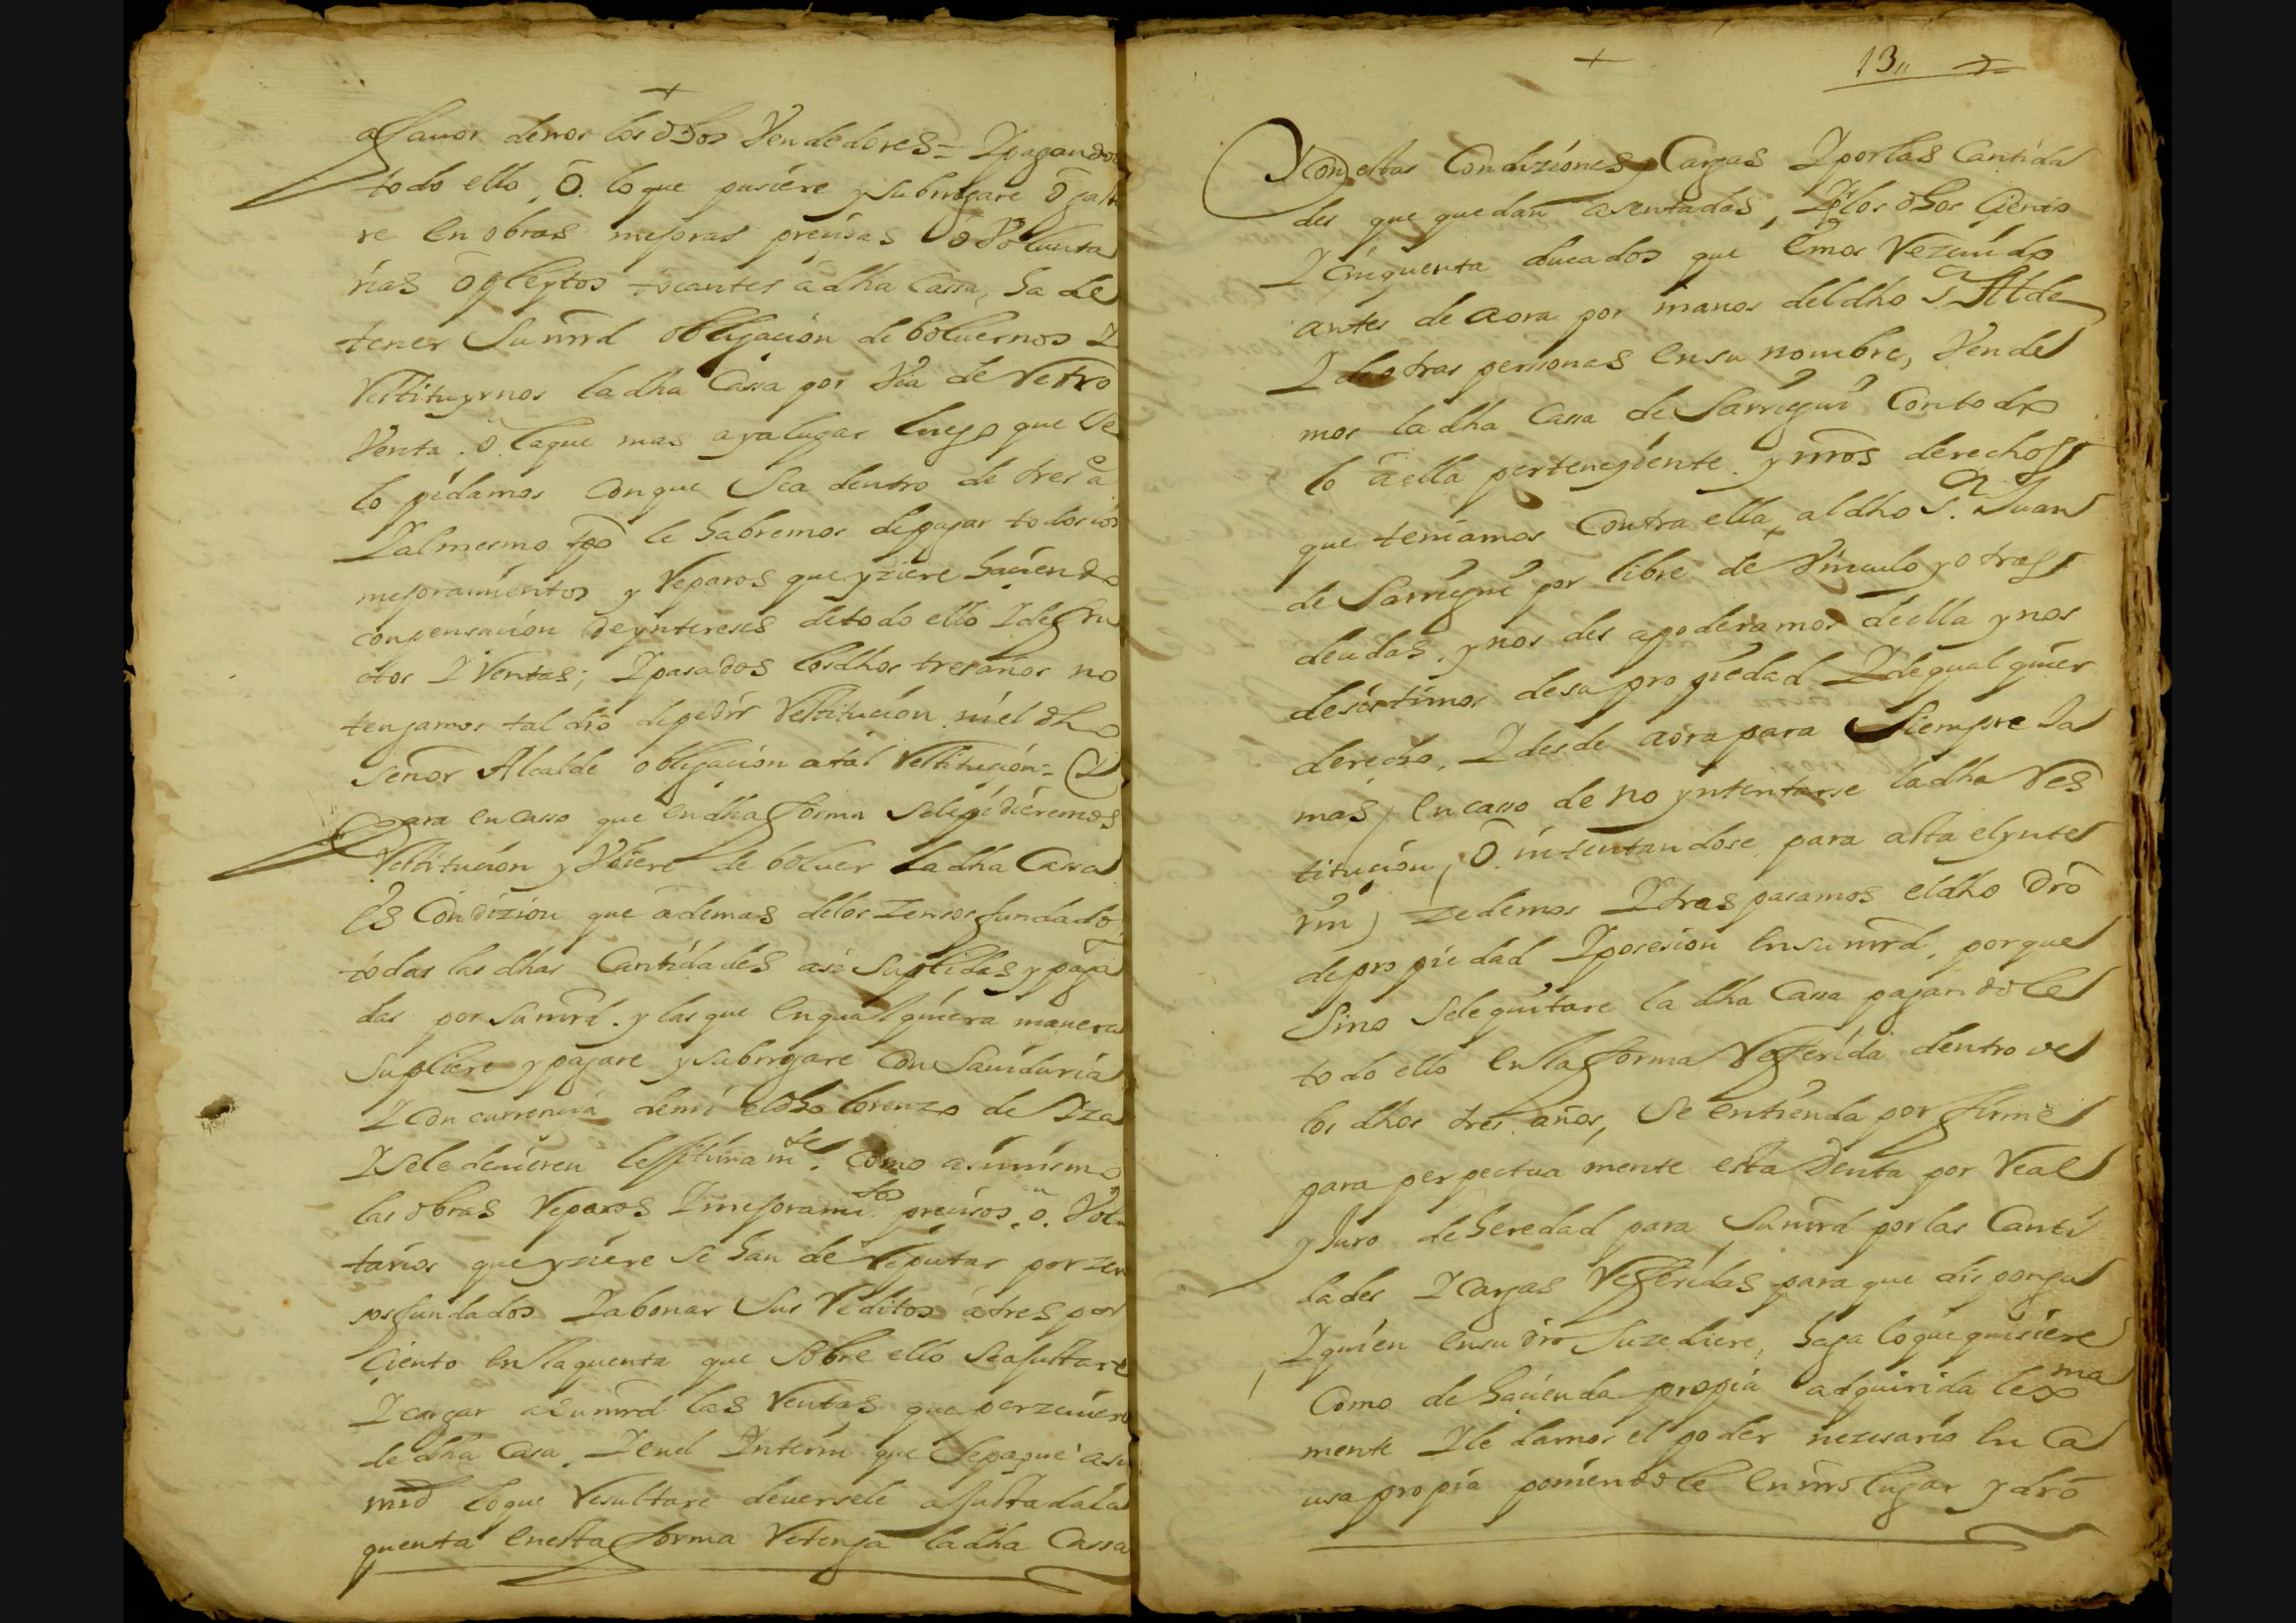 +
afavor denos los dhos Vendedores = Ypagando
todo ello, ò. lo que pusiere y subrrogare ò gasta
re en obras mejoras preçisas ò Volunta
rias ò pleytos tocantes a dha Cassa, ha de
tener Su mrd obligaçion de bolvernos Y
Restituyrnos la dha Cassa por Via de Retro
Venta. ò laque mas aya lugar luego que Se
lo pidamos Conque Sea dentro de tres aº
Y al mesmo tpo le habremos depagar todos los
mejoramientos y Reparos que yziere haçiendo
conpensaçion de yntereses detodo ello Y de fru
ctos Y Rentas; Y pasados los dhos tres años no
tengamos tal dro depedir Restituçion ni el dho
Señor Alcalde obligaçion a tal Restituçion = Y
para en casso que en dha forma Se le pidieremos
Restituçion y Vbiere de bolver la dha Cassa
Es Condizion que ademas delos Zensos fundados
todas las dhas Cantidades asi Suplidas y paga
das por Su mrd. y las que en qualquiera manera
Supliere y pagare y subrrogare Con Saviduria
Y Con currençia demi el dho lorenzo de Yza
Y se le devieren lexitima mte. Como asimismo
las obras Reparos Y mejoramitos preçisos, o. Volun
tarios que yziere se han de Reputar por zen
sos fundados Y abonar Sus Reditos a tres por
Ciento en la quenta que Sobre ello Se ajustare
Y cargar a Su mrd las Rentas que perzivier
de dha Casa. Y en el Interin que Se pague a su
mrd lo que Resultare deversele ajustada la
quenta en esta forma Retenga la dha Cassa
+
13,,
Y Con estas Condiziones y Cargas Y por las Cantida
des que quedan asentadas, Y los dhos Ciento
Y Cinquenta ducados que emos Rezivido
antes de aora por manos del dho Sr Allde
Y de otras personas en su nombre, Vende
mos la dha Cassa de Sarregui Con todo
lo a ella perteneçiente. y nros derechos
que teniamos Contra ella, al dho Sr. Juan
de Sarregui por libre de Vinculo y otras
deudas. y nos des apoderamos de ella y nos
desistimos desa propiedad Y de qual quier
derecho, Y desde aora para Siempre Ja
mas, en caso de no yntentarse la dha Res
tituçion, ò. intentandose, para asta el ynte
rin) zedemos Y tras pasamos el dho dro
de propiedad Y posesion en su mrd, porque
Sino Se le quitare la dha Casa pagandole
todo ello en la forma Referida dentro de
los dhos tres años, Se entienda por firme
para perpetua mente esta Venta por Real
y Juro de heredad para Su mrd por las Canti
dades Y cargas Referidas para que disponga
Y quien en su dro Suzediere, haga lo que quisiere
Como de haçienda propia adquirida lexma
mente Y le damos el poder nezesario en Ca
usa propia poniendole en nro lugar y dro